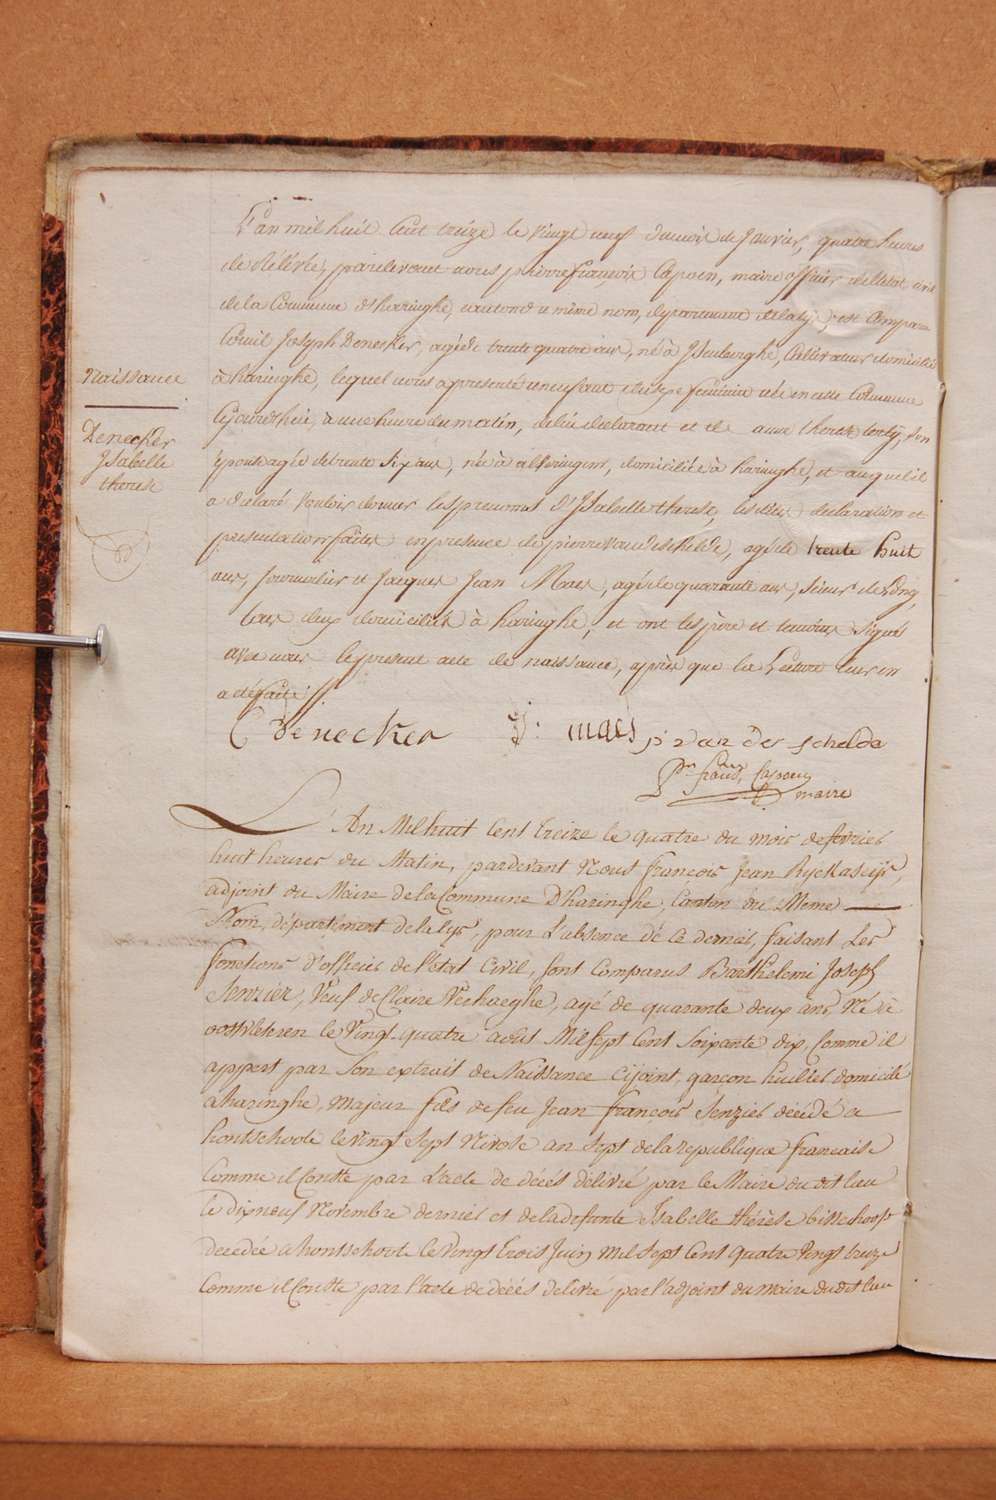 L'an mil huit Cent treize le vingt neuf du mois de Janvier, quatre heures
de relevée, pardevant nous pierre françois Capoen, maire officier de l'état civil
de la Commune d'haringhe, canton du même nom, département de la lys, est Comparu
Cornil Joseph Denecker, agé de trente quatre ans, né à Isenberghe, Cultivateur domicilié
à haringhe, lequel nous a presenté un enfant du sexe feminin née en cette Commune
Cejourd'hui, à une heure du matin, de lui declarant et de anne therese, son
épouse agée de trente six ans, née à alveringem, domiciliée à haringhe, et auquel il
a déclaré vouloir donner les prenoms d'Isabelle therese, lesdites declaration et
présentation faites en presence de pierre van de schelde, agé de trente huit
ans, journalier et Jacques Jean Maes, agé de quarante ans, Scieur de Long,
tous deux domiciliés à haringhe, et ont les père et temoins Signé
avec nous le present acte de naissance, après que la Lecture leur en
a été faite
naissance
Denecker
Isabelle
therese
C denecker J: maes p van der schelde
Prre franç Capoen
maire
L'An Mil huit Cent treize le quatre du mois de fevrier
huit heures du Matin, pardevant Nous françois Jean Ryckaseijs,
adjoint du Maire de la Commune D'haringhe, Canton du Meme
Nom, département de la lys, pour L'absence de ce dernier, faisant Les
fonctions d'officier de l'état Civil, sont Comparus Barthelemi Joseph
Senzier, Veuf de Claire Verhaeghe, agé de quarante deux ans, Né à
oostvleteren le Vingt quatre août Mil Sept Cent Soixante dix, Comme il
appert par Son extrait de Naissance cijoint, garçon huilier, domicilié
a haringhe, majeur fils de feu Jean François Senzier décédé a
hontschoote le Vingt Sept Nivose an Sept de la republique francaise
Comme il Conste par L'acte de décés délivré par le Maire du dit lieu
le dix neuf Novembre dernier et de la defunte Isabelle Thérèse bisschoop
decedée a hontschoote le Vingt trois Juin Mil Sept Cent quatre Vingt treize
Comme il Conste par l'acte de décés delivré par l'adjoint du maire du dit lieu